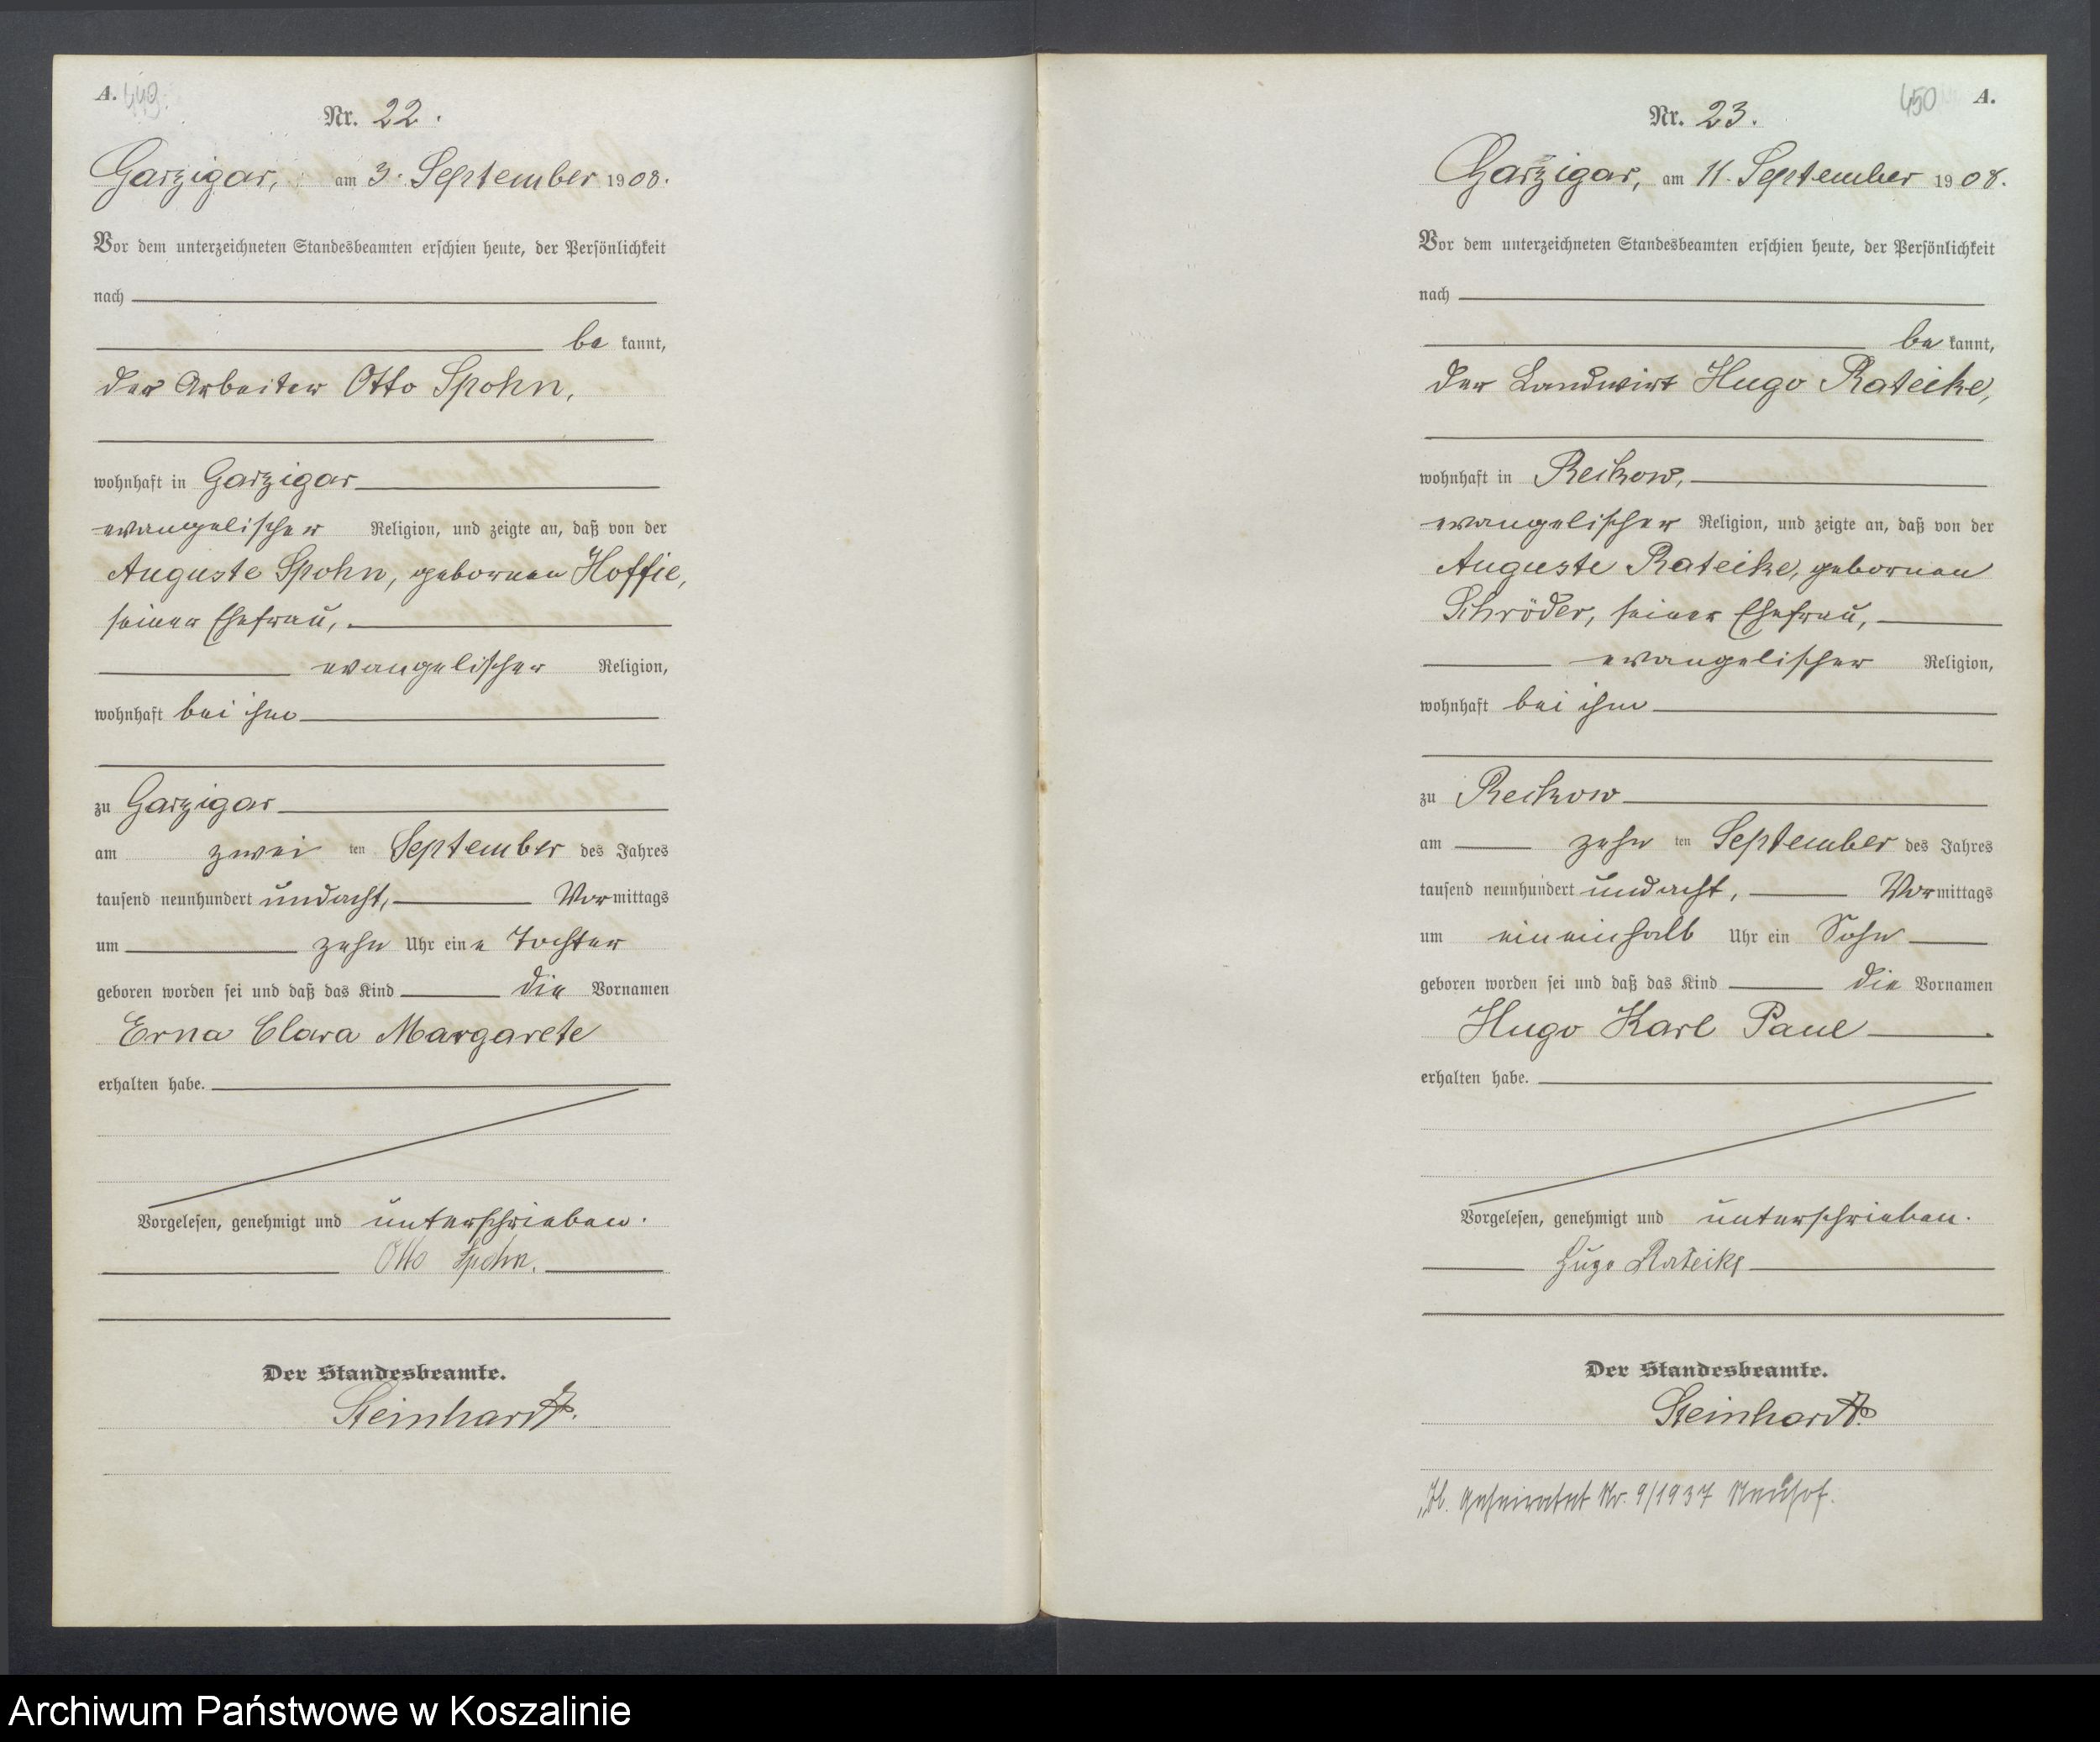 A. 449.
Nr. 22.
Garzigar, am 3. September 1908.
Vor dem unterzeichneten Standesbeamten erschien heute, der Persönlichkeit
nach
be kannt,
der Arbeiter Otto Spohn,
wohnhaft in Garzigar
evangelischer Religion, und zeigte an, daß von der
Auguste Spohn, geborenen Hoffie,
seiner Ehefrau,
evangelischer Religion,
wohnhaft bei ihm
zu Garzigar
am zwei ten September des Jahres
tausend neunhundert undacht, Vormittags
um zehn Uhr eine Tochter
geboren worden sei und daß das Kind die Vornamen
Erna Clara Margarete
erhalten habe.
Vorgelesen, genehmigt und unterschrieben.
Otto Spohn.
Der Standesbeamte.
Steinhardt.
450 A.
Nr. 23.
Garzigar, am 11. September 1908.
Vor dem unterzeichneten Standesbeamten erschien heute, der Persönlichkeit
nach
be kannt,
der Landwirt Hugo Rateike,
wohnhaft in Reckow,
evangelischer Religion, und zeigte an, daß von der
Auguste Rateike, geborenen
Schröder, seiner Ehefrau,
evangelischer Religion,
wohnhaft bei ihm
zu Reckow
am zehn ten September des Jahres
tausend neunhundert undacht, Vormittags
um eineinhalb Uhr ein Sohn
geboren worden sei und daß das Kind die Vornamen
Hugo Karl Paul
erhalten habe.
Vorgelesen, genehmigt und unterschrieben.
Hugo Rateike
Der Standesbeamte.
Steinhardt.
geheiratet Nr. 9/1937 Neuhof.
Archiwum Państwowe w Koszalinie